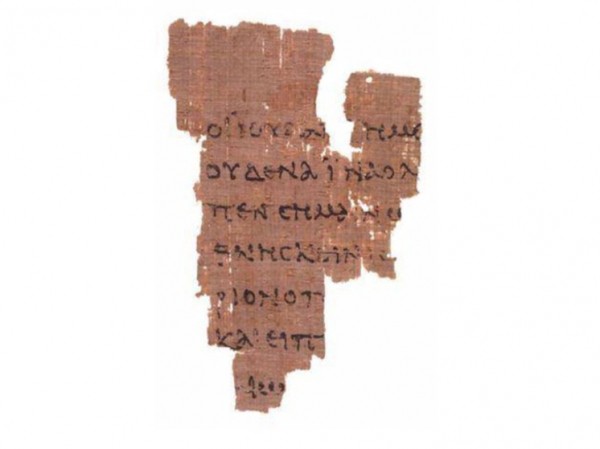 ΟΙ ΙΟΥΔΑΙ ΗΜΕ
ΟΥΔΕΝΑ ΙΝΑ Ο Λ
ΠΕΝ CΗΜΑΙΝΩ
ΘΝΗCΚΕΙΝ
ΡΙΟΝ Ο Π
ΚΑΙ ΕΙΠ